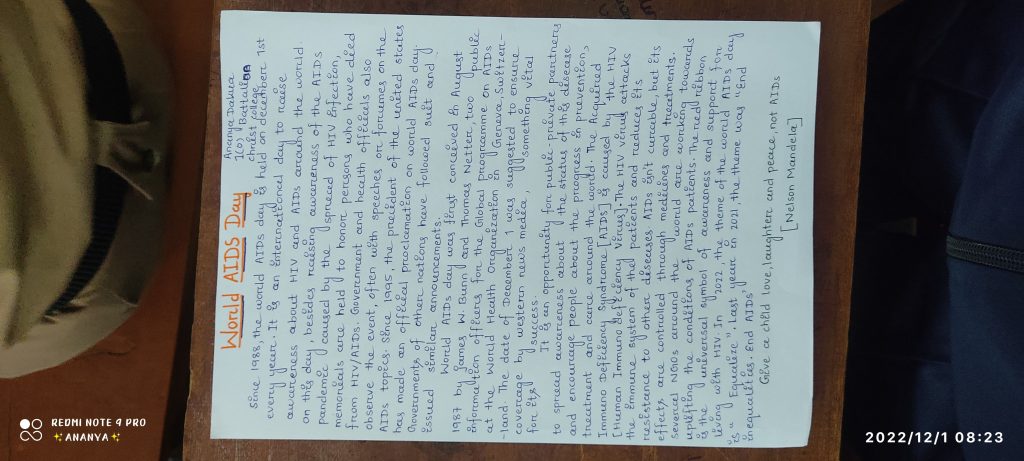 World AIDS Day
Ananya Dakua
Christ College
Since 1988, the world AIDS day is held on december 1st
every year. It is an international day to raise
awareness about HIV and AIDS around the world
on this day, besides raising awareness of the AIDS
pandemic caused by the spread of HIV infection,
memorials are held to honor persons who have died
from HIV/AIDS. Government and health officials also
observe the event, often with speeches or forumes on the
AIDS topics. Since 1995, the president of the united states
has made an official proclamation on world AIDS day.
Governments of other nations have followed suit and
issued similar announcements.
World AIDS day was first conceived in August
1987 by James W. Bunn and Thomas Netter, two public
information officers for the Global programme on AIDS
at the World Health Organization in Geneva, Switzer-
-land. The date of December 1 was suggested to ensure
coverage by western news media, something vital
for its success.
It is an opportunity for public-private partners
to spread awareness about the status of the disease
and encourage people about the progress in prevention,
treatment and care around the world. The Acquired
Immuno Deficiency Syndrome [AIDS] is caused by the HIV
[Human Immuno deficiency virus]. The HIV virus attacks
the immune system of the patients and reduces its
resistance to other diseases AIDS isn't curable, but its
effects are controlled through medicines and treatments.
several NGOs around the world are working towards
uplifting the conditions of AIDS patients. The red ribbon
is the universal symbol of awareness and support for
living with HIV. In 2022 the theme of the world AIDS day
is "Equalize". Last year in 2021, the theme was "End
inequalities. End AIDS"
Give a child love, laughter and peace, not AIDS
[Nelson Mandela]
REDMI NOTE 9 PRO
ANANYA
2022/12/1 08:23